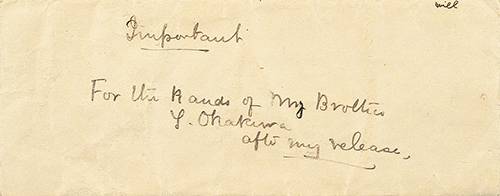 will
Important
For the hands of My Brother
Y. Okakura
after my release,